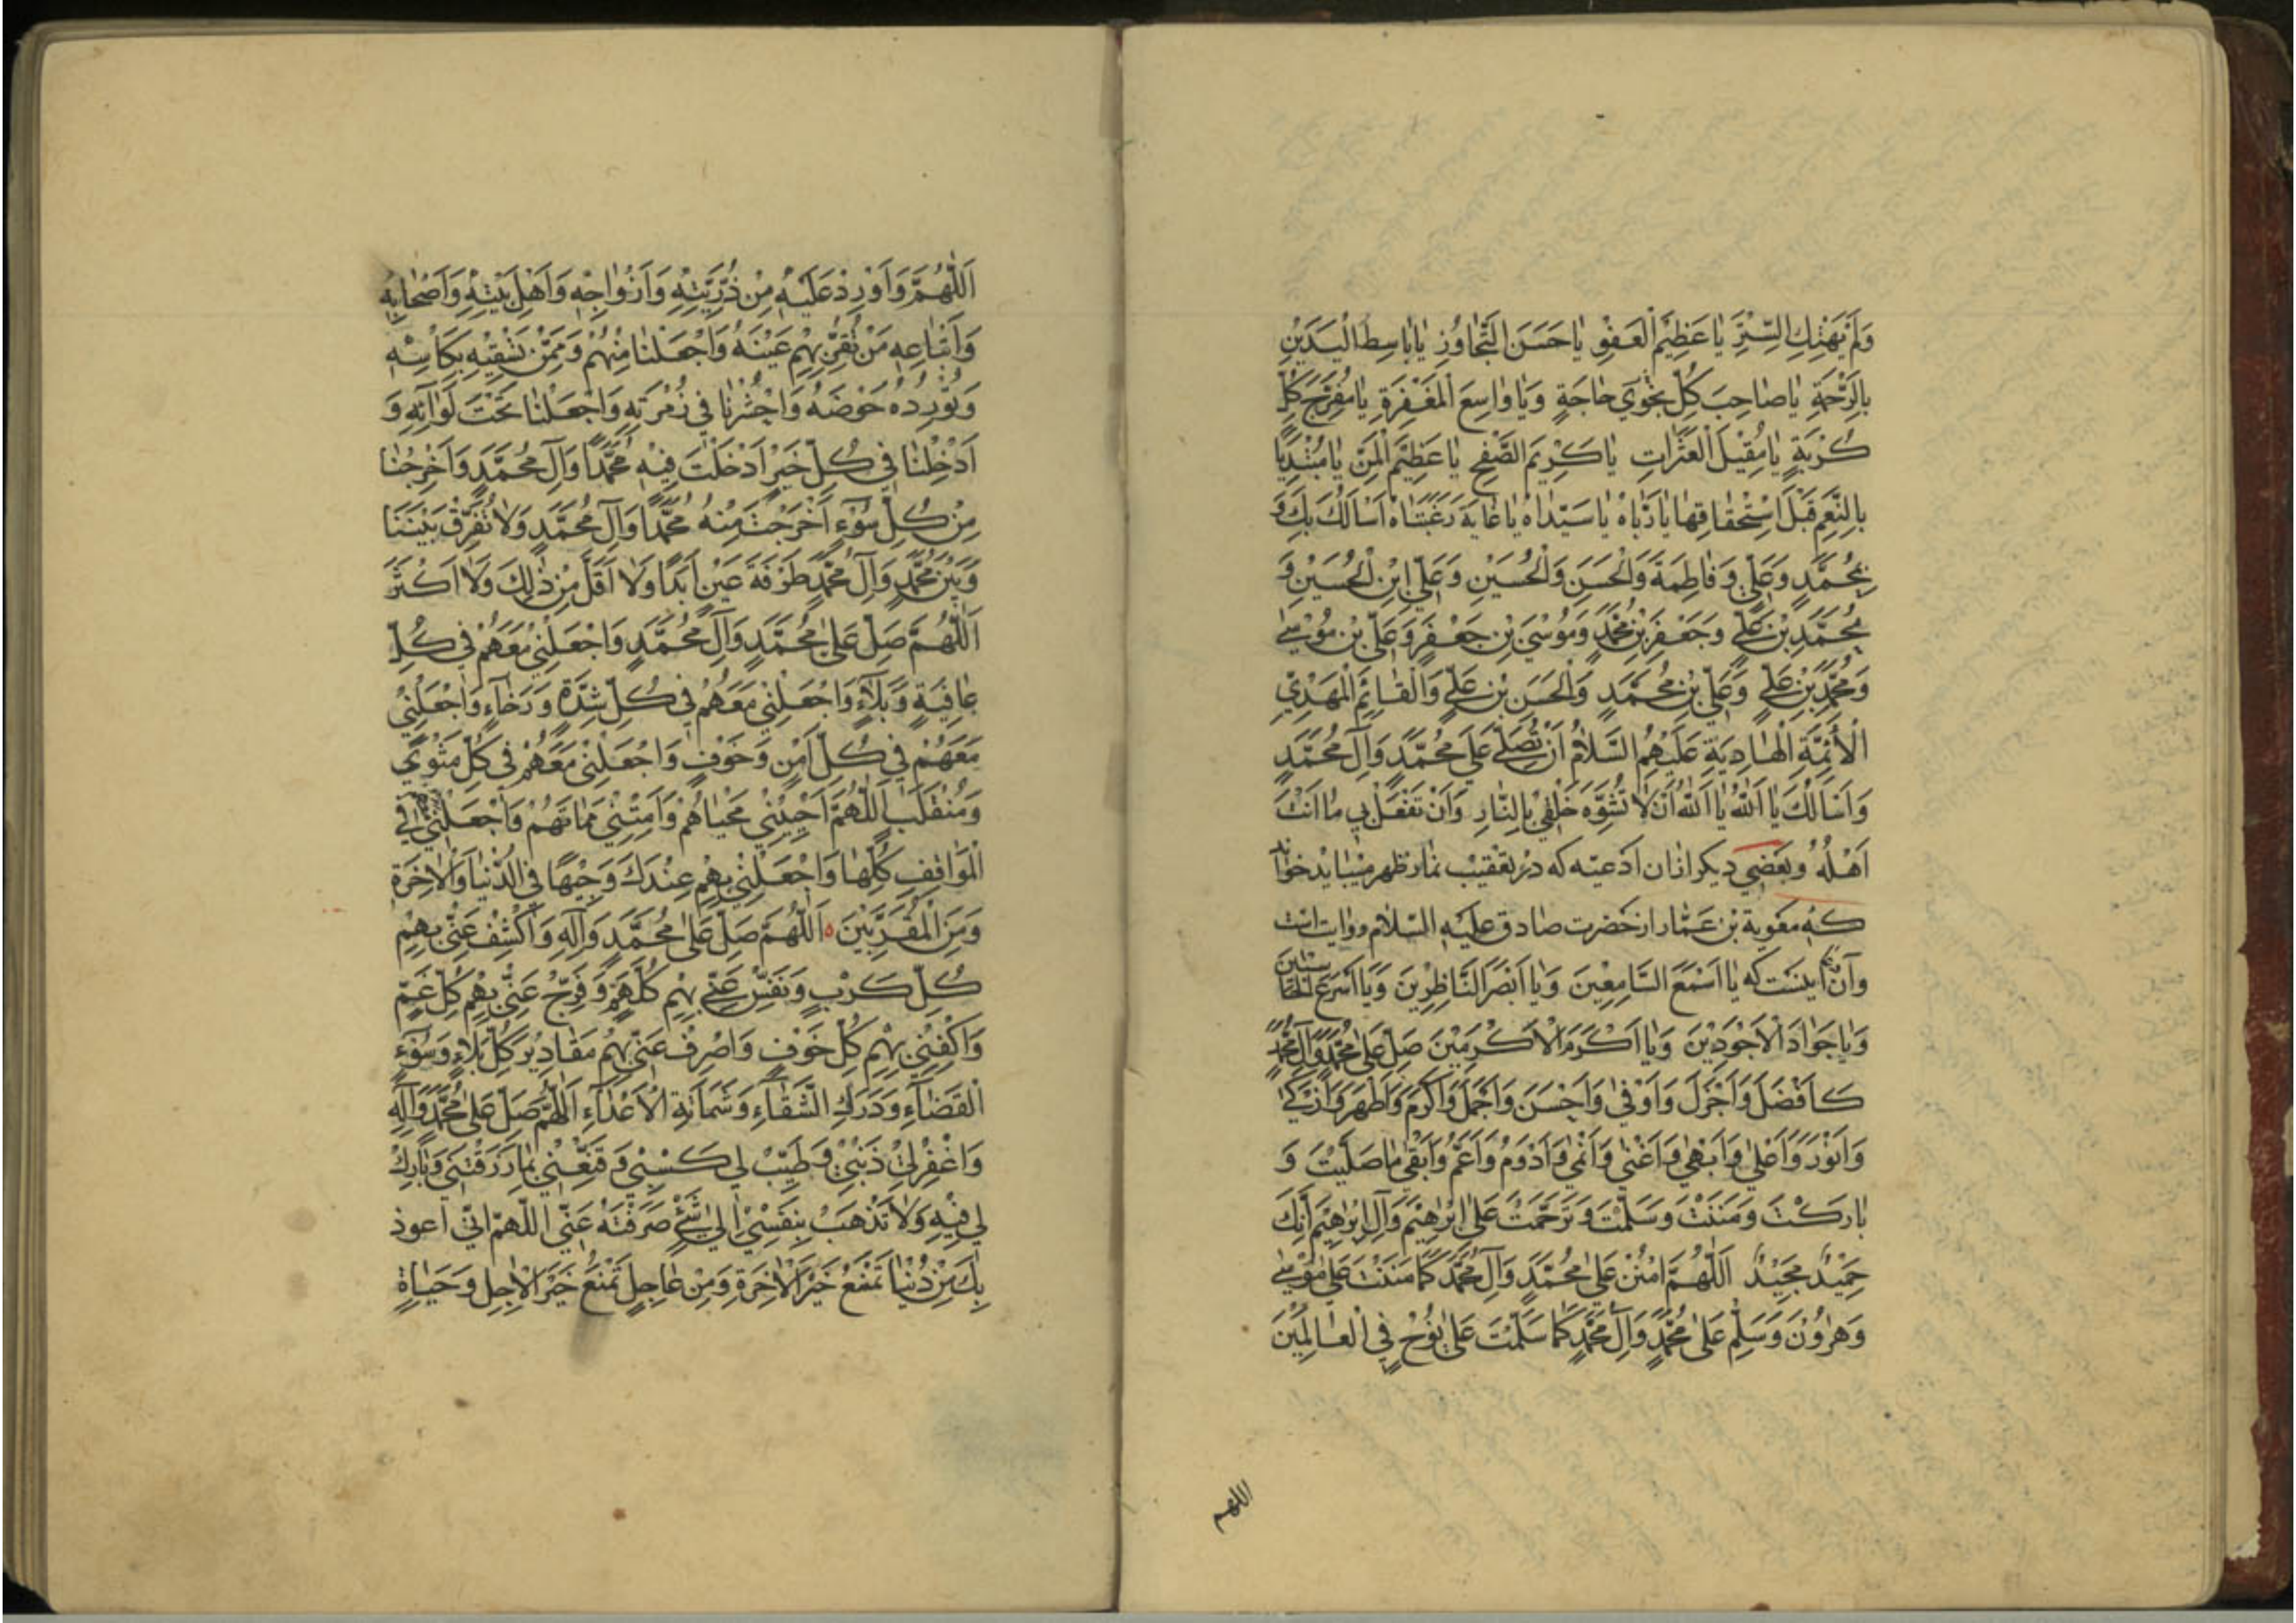 وَلَمْ يَهْتِكِ السِّتْرَ يَا عَظِيْمَ الْعَفْوِ يَا حَسَنَ التَّجَاوُزِ يَا بَاسِطَ الْيَدَيْنِ
بِالرَّحْمَةِ يَا صَاحِبَ كُلِّ نَجْوَي حَاجَةٍ وَيَا وَاسِعَ الْمَغْفِرَةِ يَا مُفَرِّجَ كُلِّ
كُرْبَةٍ يَا مُقِيْلَ الْعَثَرَاتِ يَا كَرِيْمَ الصَّفْحِ يَا عَظِيْمَ الْمَنِّ يَا مُبْتَدِيًا
بِالنِّعَمِ قَبْلَ اسْتِحْقَاقِهَا يَا رَبَّاهُ يَا سَيِّدَاهُ يَا غَايَةَ رَغْبَتَاهُ اَسْاَلُكَ بِكَ وَ
بِمُحَمَّدٍ وَعَلِيٍّ وَفَاطِمَةَ وَالْحَسَنِ وَالْحُسَيْنِ وَعَلِيِّ ابْنِ الْحُسَيْنِ وَ
مُحَمَّدِ بْنِ عَلِيٍّ وَجَعْفَرِ بْنِ مُحَمَّدٍ وَمُوْسَيَ بْنِ جَعْفَرٍ وَعَلِيِّ بْنِ مُوْسٰي
وَمُحَمَّدِ بْنِ عَلِيٍّ وَعَلِيِّ بْنِ مُحَمَّدٍ وَالْحَسَنِ بْنِ عَلِيٍّ وَالْقَائِمِ الْمَهْدِيِّ
الْاَئِمَّةِ الْهَادِيَةِ عَلَيْهِمُ السَّلَامُ اَنْ تُصَلِّيَ عَلٰي مُحَمَّدٍ وَآلِ مُحَمَّدٍ
وَاَسْاَلُكَ يَا اَللهُ يَا اَللهُ اَنْ لَا تُشَوِّهَ خَلْقِيْ بِالنَّارِ وَاَنْ تَفْعَلَ بِي مَا اَنْتَ
اَهْلُهُ وبَعْضِي ديكر ازان اَدْعِيَه كه دَر تعْقيْب نماز ظهر ميبايد خواند
كه مَعٰوية بْن عَمّار از حَضرت صادق عليه السّلام روايت است
وآن اينست كه يَا اَسْمَعَ السَّامِعِيْنَ وَيَا اَبْصَرَ النَّاظِرِيْنَ وَيَا اَسْرَعَ الْحَاسِبِيْنَ
وَيَا جَوَادَ الْاَجْوَدِيْنَ وَيَا اَكْرَمَ الْاَكْرَمِيْنَ صَلِّ عَلٰى مُحَمَّدٍ وَآلِ مُحَمَّدٍ
كَاَفْضَلَ وَاَجْزَلَ وَاَوْفٰي وَاَحْسَنَ وَاَجْمَلَ وَاَكْرَمَ وَاَطْهَرَ وَاَزْكٰي
وَاَنْوَرَ وَاَعْلٰي وَاَبْهٰي وَاَغْنٰي وَاَنْمٰي وَاَدْوَمُ وَاَعَمُّ وَاَبْقٰي مَا صَلَّيْتَ وَ
بَارَكْتَ وَمَنَنْتَ وَسَلَّمْتَ وَتَرَحَّمْتَ عَلٰي اِبْرٰهِيْمَ وَآلِ اِبْرٰهِيْمَ اِنَّكَ
حَمِيْدٌ مَجِيْدٌ اَللّٰهُمَّ امْنُنْ عَلٰي مُحَمَّدٍ وَآلِ مُحَمَّدٍ كَمَا مَنَنْتَ عَلٰي مُوْسٰي
وَهٰرُوْنَ وَسَلِّمْ عَلٰي مُحَمَّدٍ وَآلِ مُحَمَّدٍ كَمَا سَلَّمْتَ عَلٰي نُوْحٍ فِي الْعَالَمِيْنَ
اللهم
اَللّٰهُمَّ وَاَوْرِدْ عَلَيْهِ مِنْ ذُرِّيَّتِهِ وَاَزْوَاجِهِ وَاَهْلِ بَيْتِهِ وَاَصْحَابِهِ
وَاَتْبَاعِهِ مَنْ تُقِرُّ بِهِمْ عَيْنَهُ وَاجْعَلْنَا مِنْهُمْ وَمِمَّنْ تَسْقِيْهِ بِكَاْسِهِ
وَتُوْرِدُهُ حَوْضَهُ وَاحْشُرْنَا فِي زُمْرَتِهِ وَاجْعَلْنَا تَحْتَ لِوَائِهِ وَ
اَدْخِلْنَا فِي كُلِّ خَيْرٍ اَدْخَلْتَ فِيْهِ مُحَمَّدًا وَآلَ مُحَمَّدٍ وَاَخْرِجْنَا
مِنْ كُلِّ سُوْءٍ اَخْرَجْتَ مِنْهُ مُحَمَّدًا وَآلَ مُحَمَّدٍ وَلَا تُفَرِّقْ بَيْنَنَا
وَبَيْنَ مُحَمَّدٍ وَآلِ مُحَمَّدٍ طَرْفَةَ عَيْنٍ اَبَدًا وَلَا اَقَلَّ مِنْ ذٰلِكَ وَلَا اَكْثَرَ
اَللّٰهُمَّ صَلِّ عَلٰي مُحَمَّدٍ وَآلِ مُحَمَّدٍ وَاجْعَلْنِيْ مَعَهُمْ فِي كُلِّ
عَافِيَةٍ وَبَلَاءٍ وَاجْعَلْنِيْ مَعَهُمْ فِي كُلِّ شِدَّةٍ وَرَخَاءٍ وَاجْعَلْنِيْ
مَعَهُمْ فِي كُلِّ اَمْنٍ وَخَوْفٍ وَاجْعَلْنِيْ مَعَهُمْ فِي كُلِّ مَثْوَيً
وَمُنْقَلَبٍ اَللّٰهُمَّ اَحْيِيْنِيْ مَحْيَاهُمْ وَاَمِتْنِيْ مَمَاتَهُمْ وَاجْعَلْنِيْ فِي
الْمَوَاقِفِ كُلِّهَا وَاجْعَلْنِيْ بِهِمْ عِنْدَكَ وَجِيْهًا فِي الدُّنْيَا وَالْاٰخِرَةِ
وَمِنَ الْمُقَرَّبِيْنَ ه اَللّٰهُمَّ صَلِّ عَلٰى مُحَمَّدٍ وَآلِهِ وَاكْشِفْ عَنِّيْ بِهِمْ
كُلَّ كَرْبٍ وَنَفِّسْ عَنِّيْ بِهِمْ كُلَّ هَمٍّ وَفَرِّجْ عَنِّيْ بِهِمْ كُلَّ غَمٍّ
وَاكْفِنِيْ بِهِمْ كُلَّ خَوْفٍ وَاصْرِفْ عَنِّيْ بِهِمْ مَقَادِيْرَ كُلِّ بَلَاءٍ وَسُوْءِ
الْقَضَاءِ وَدَرَكِ الشَّقَاءِ وَشَمَاتَةِ الْاَعْدَاءِ اَللّٰهُمَّ صَلِّ عَلٰي مُحَمَّدٍ وَآلِهِ
وَاغْفِرْ لِيْ ذَنْبِيْ وَطَيِّبْ لِي كَسْبِيْ وَقَنِّعْنِيْ بِمَا رَزَقْتَنِيْ وَبَارِكْ
لِي فِيْهِ وَلَا تَذْهَبْ بِنَفْسِيْ اِلٰي شَيْءٍ صَرَفْتَهُ عَنِّيْ اَللّٰهُمَّ اِنِّي اَعوذ
بِكَ مِنْ دُنْيَا تَمْنَعُ خَيْرَ الْاٰخِرَةِ وَمِنْ عَاجِلٍ تَمْنَعُ خَيْرَ الْاٰجِلِ وَحَيَاةٍ